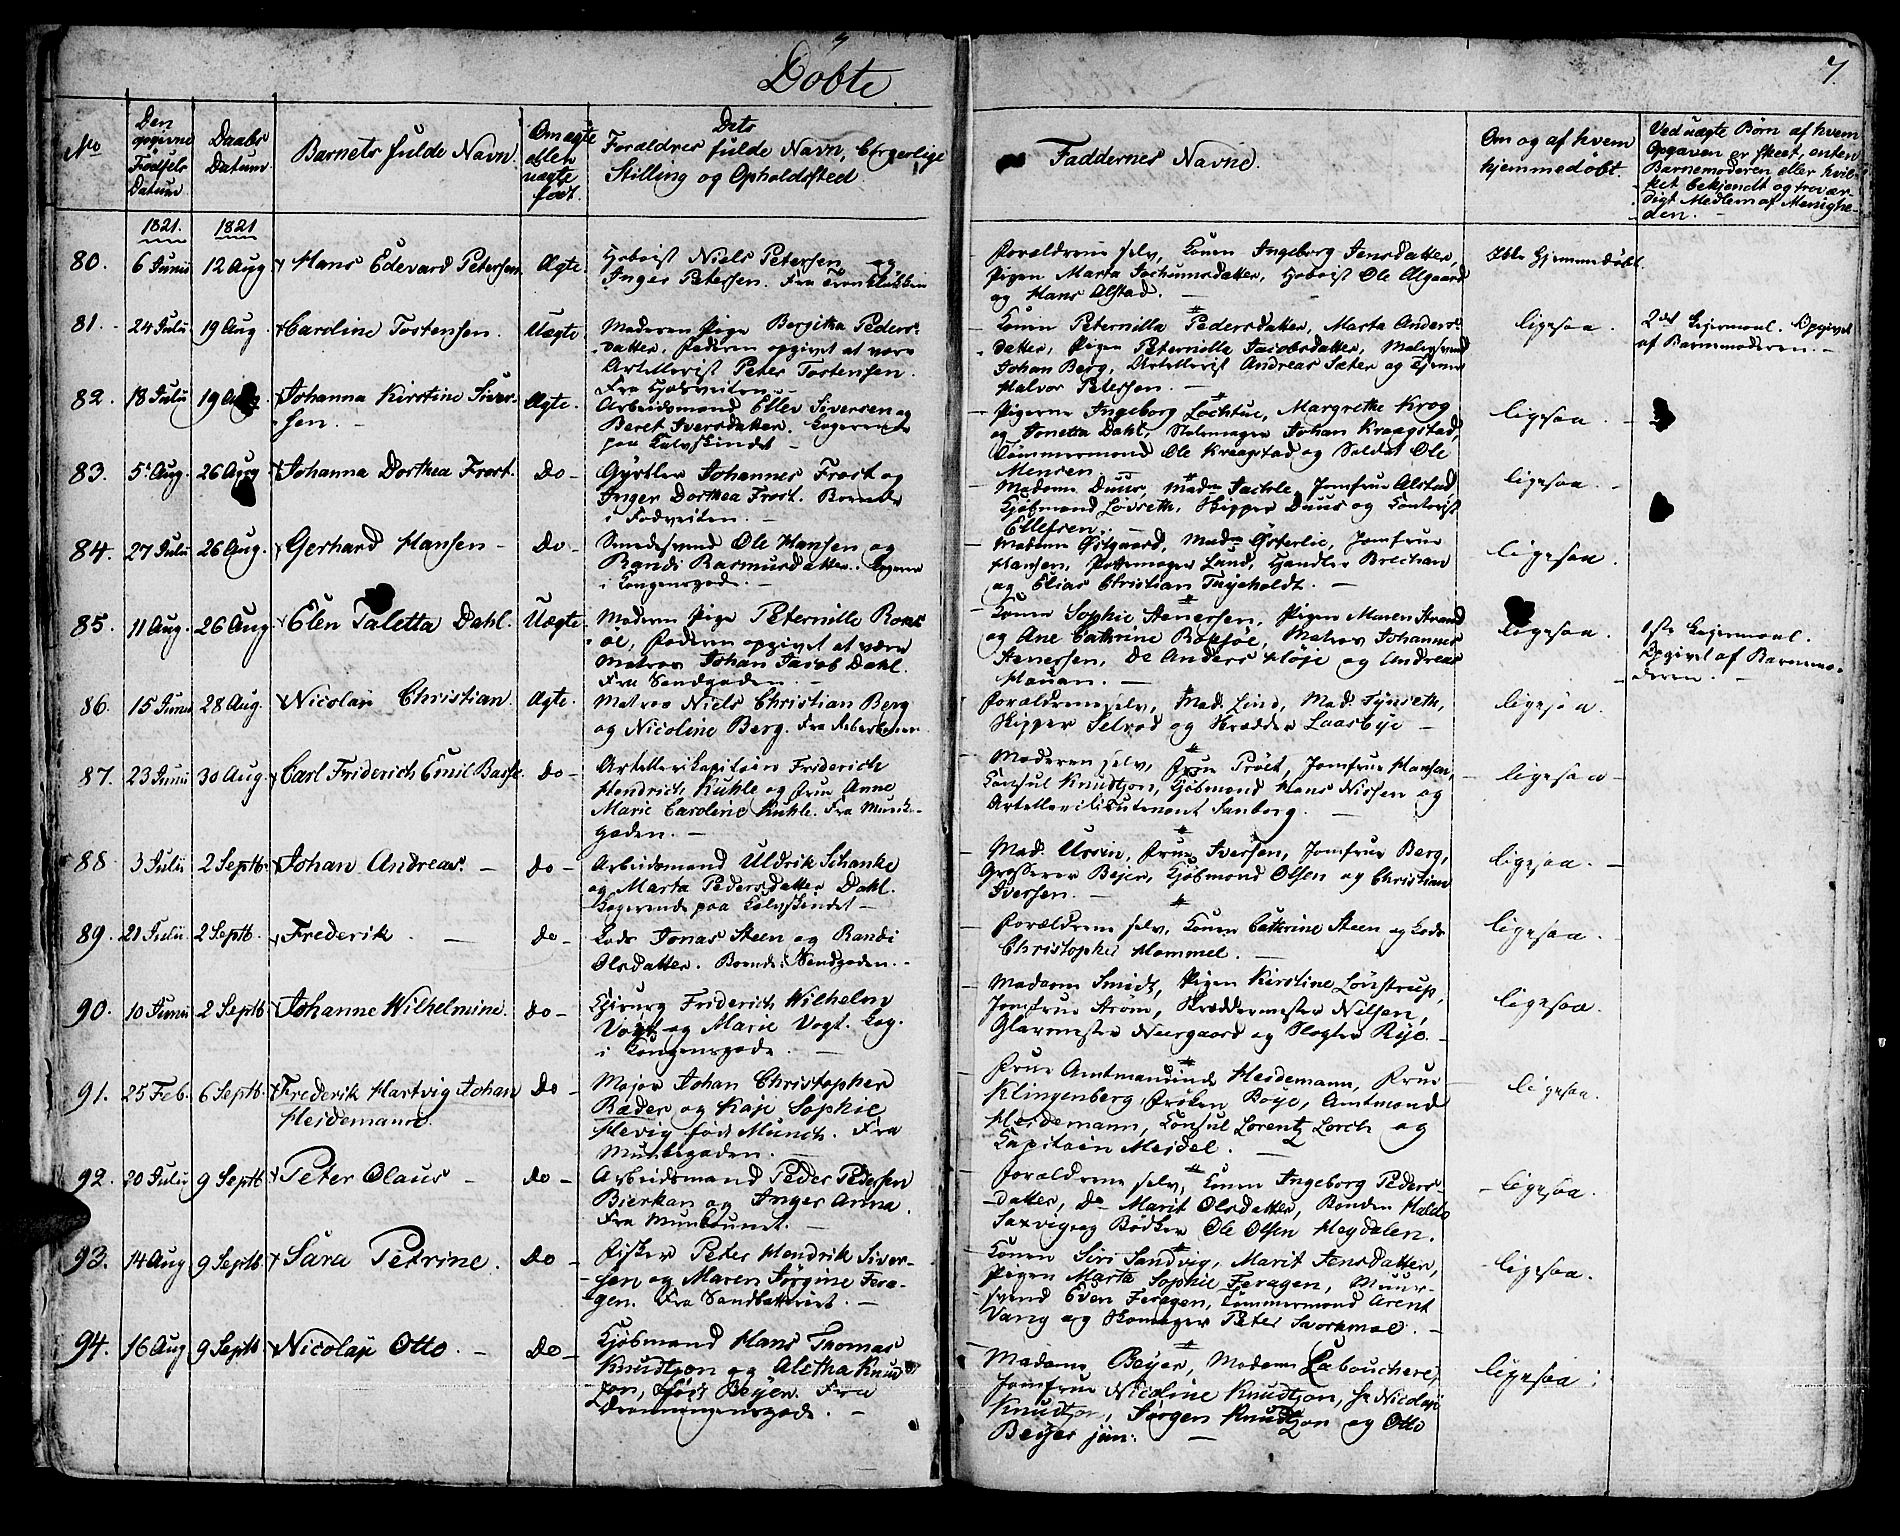 Døbte
7.
No
Den opgivne Fødsels Datum
Daabs Datum
Barnets fulde Navn
Om ægte eller uægte født.
Dets Forældres fulde Navn, borgerlige Stilling og Opholdssted
Faddernes Navne.
Om og af hvem hjemmedøbt.
Ved uægte Børn af hvem Opgaven er skeet, enten Barnemoderen eller hvilket bekjendt og troværdigt Medlem af Menigheden.
1821.
1821
80.
6 Junii
12 Aug
Hans Edevard Petersen
Ægte.
Hoboist Niels Petersen og
Inger Petersen. Fra
Forældrene selv, Konen Ingeborg Jensdatter,
Pigen Marta Jochumsdatter, Hoboist Ole Algaard
og Hans Alstad.
Ikke hjemmedøbt.
81.
24 Julii
19 Aug
Caroline Tostensen.
Uægte
Moderen Pige Bergitha Peders-
datter, Faderen opgivet at være
Artellerist Peter Tostensen.
Konen Peternilla Pedersdatter, Marta Anders-
datter, Pigen Peternilla Jacobsdatter,
Johan Berg, Artellerist Andreas Sæter og
Halvor Petersen.
ligesaa.
2det Leiermaal. Opgivet
af Barnemoderen.
82.
18 Julii
19 Aug
Johanna Kirstine Siver-
sen.
Ægte.
Arbeidsmand Ellev Siversen og
Beret Iversdatter. Logerende
paa Kalvskindet
Pigerne Ingeborg Lochtue, Margrethe Krog
og Jonetta Dahl, Johan Kraagstad,
Tømmermand Ole Kraagstad og Soldat Ole
Mensen
ligesaa.
83.
5 Aug.
26 Aug
Johanna Dorthea Frost.
Do
Gyrtler Johannes Frost og
Inger Dorthea Frost. Boende
i Fodveiten.
Madame Duus, Madm Jachsle, Jomfrue Alstad
Kjøbmand Løvseth, Skipper Duus og Contorist
Ellefsen.
ligesaa.
84.
27 Julii
26 Aug.
Gerhard Hansen
Do
Smedesvend Ole Hansen og
Randi Rasmusdatter. Logerer
i Kongensgade.
Madame Østgaard, Madm Østerlie, Jomfrue
Hansen, Pottemager Lund, Handler Brechan
og Elias Christian Tuxholdt.
ligesaa.
85.
11 Aug.
26 Aug
Elen Taletta Dahl.
Uægte
Moderen Pige Peternille
Faderen opgivet at være
Matros Johan Jacob Dahl.
Fra Sandgaden.
Konen Sophie Aenersen, Pigen Maren Strand
og Ane Cathrine Matros Johannes
Aenersen, do Anders Høje og Andreas
ligesaa.
1ste Leiermaal.
Opgivet af Barnemo-
deren.
86.
15 Junii
28 Aug.
Nicolay Christian.
Ægte.
Matros Niels Christian Berg
og Nicoline Berg. Fra
Forældrene selv, Mad. Lind, Mad. Tynseth,
Skipper Selvod og Skrædder Laarbye
ligesaa.
87.
23 Junii
30 Aug.
Carl Friderich Emil Basse.
Do
Artellerikapitain Friderich
Hendrich Kuhle og Frue Anne
Marie Caroline Kuhle. Fra Munke-
gaden.
Moderen selv, Frue Tröet, Jomfrue Hansen,
Consul Knudtzon, Kjøbmand Hans Nissen og
Artellerilieutenant Sanborg.
ligesaa
88
3 Julii
2 Septb.
Johan Andreas.
Do
Arbeidsmand Uldrik Schanke
og Marta Pedersdatter Dahl.
Logerende paa Kalvskindet
Mad. Ursin, Frue Iversen, Jomfrue Berg,
Grosserer Bejer, Kjøbmand Olsen og Christian
Iversen.
ligesaa.
89.
21 Julii
2 Septb.
Frederik.
Do
Lods Jonas Steen og Randi
Olsdatter. Boende i Sandgaden.
Forældrene selv, Konen Cathrine Steen og Lods
Christopher Hommel.
ligesaa.
90.
10 Junii
2 Septb
Johanne Wilhelmine.
Do
Chirurg Friderich Wilhelm
Vogt og Marie Vogt. Log.
i Kongensgade.
Madame Smidt, Pigen Kirstine Lönstrup,
Jomfrue Strøm, Skræddermester Nilsen,
Glarmester Neergaard og Slagter Rye.
ligesaa.
91.
25 Feb.
6 Septb.
Frederik Hartvig Johan
Heidemann.
Do
Major Johan Christopher
Ræder og Kaja Sophie
Hevig født Munch. Fra
Munkegaden.
Frue Amtmandinde Heidemann, Frue
Klingenberg, Frøken Boye, Amtmand
Heidemann, Consul Lorentz Lorch og
Kapitain Meidel.
ligesaa.
92.
20 Julii
9 Septb
Peter Olaus
Do
Arbeidsmand Peder Pedersen
Bierkan og Inger Anna.
Fra
Forældrene selv, Konen Ingeborg Peders-
datter, Do Marit Olsdatter, Bonden Halde
Saxvig og Bødker Ole Olsen Hegdalen.
ligesaa.
93.
14 Aug
9 Septb.
Sara Petrine.
Do
Fisker Peter Hendrik Siver-
sen og Maren Jørgine Fera-
gen. Fra Sandbatteriet.
Konen Siri Sandvig, Marit Jensdatter,
Pigen Marta Sophie Feragen, Muur-
svend Even Feragen, Tømmermand Arent
Vang og Skomager Peter Svorkmoe.
ligesaa.
94.
16 Aug
9 Septb
Nicolay Otto.
Do
Kjøbmand Hans Thomas
Knudtzon og Aletha Knud
zon, født Beyer. Fra
Dronningensgade.
Madame Beyer, Madame Labouchere,
Jomfrue Nicoline Knudtzon, Hr Nicolay
Knudtzon, Jørgen Knudtzon og Otto
Beyer jun.
ligesaa